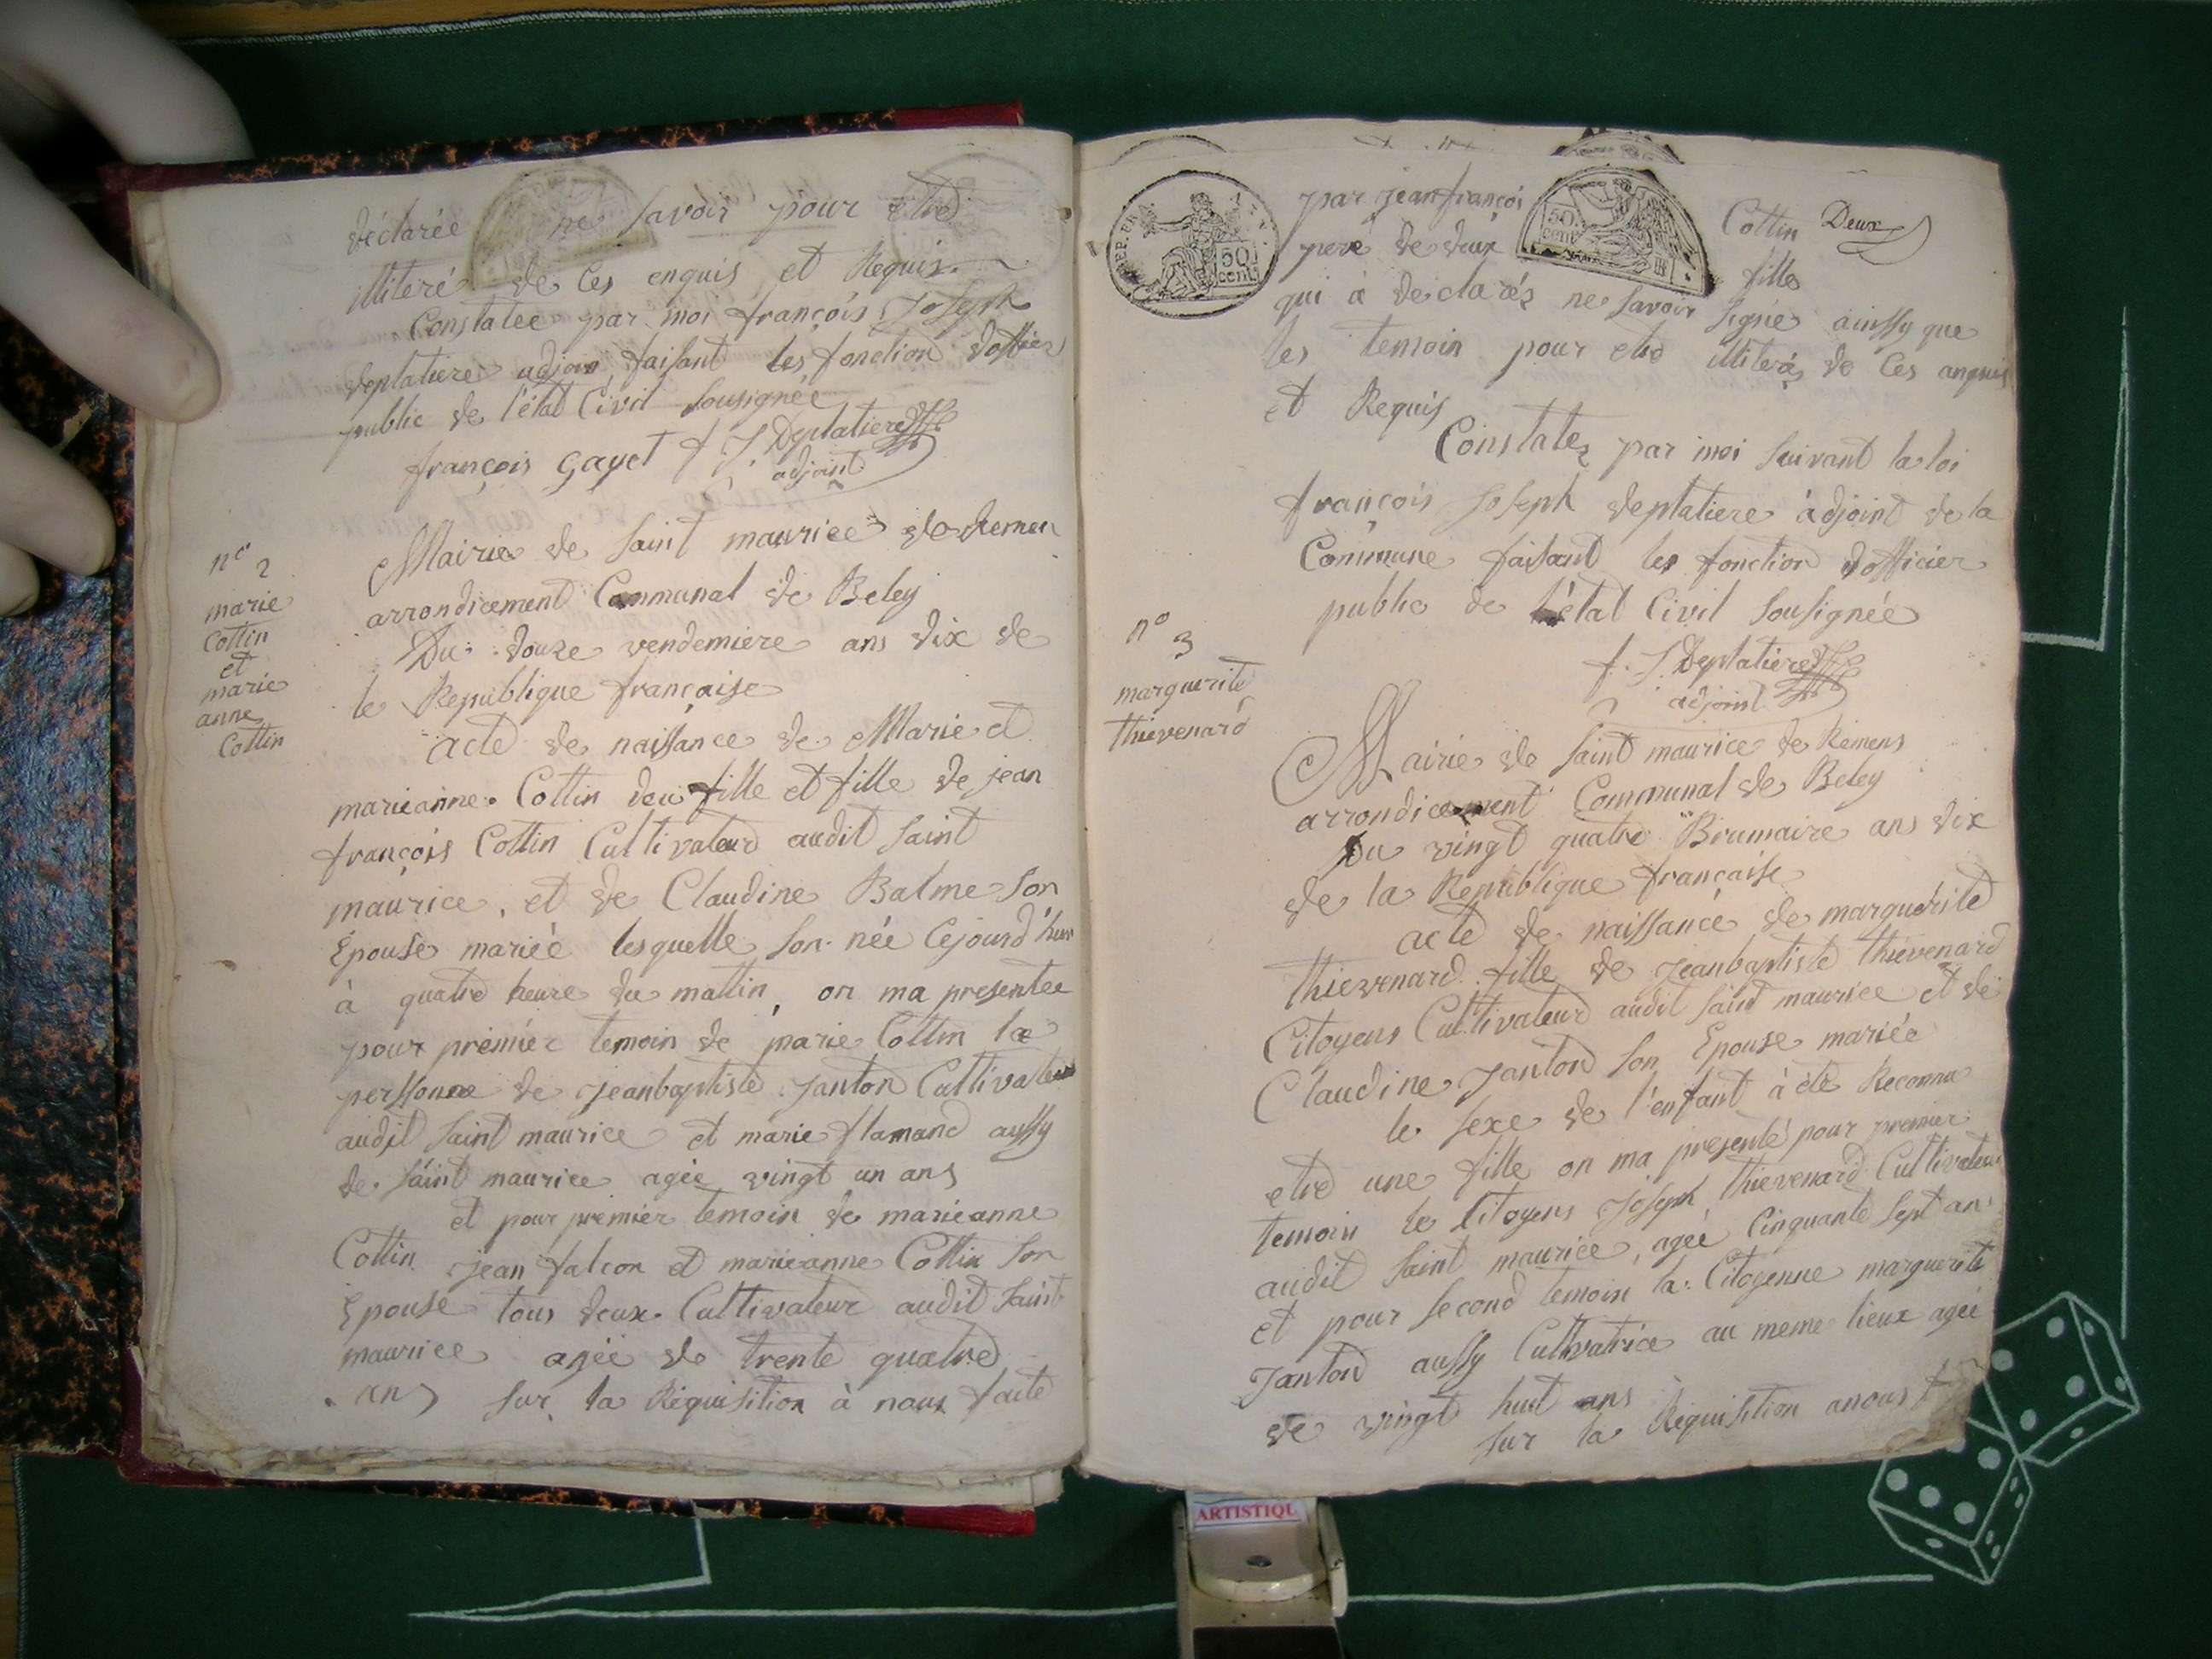 déclarée ne savoir pour etre
illiteré de ces enquis et Requis.
Constatée par moi françois Joseph
deplatiere adjoin faisant les fonction doffier
public de l'état Civil sousignée
françois gayet f. J. Deplatiere
adjoint
n° 2
marie
Cottin
et
marie
anne
Cottin
Mairie de saint maurice de Remen
arrondicement Communal de Beley
Du douze vendemiere ans dix de
le Republique française
acte de naissance de Marie et
marieanne Cottin deu fille et fille de jean
françois Cottin Cultivateur audit saint
maurice, et de Claudine Balme son
Epouse mariée lesquelle son née Cejourd'hui
à quatre heure du mattin, on ma presentee
pour premier temoin de marie Cottin la
personne de jeanbaptiste janton Cultivateur
audit saint maurice et marie flamand aussy
de saint maurice agée vingt un ans
et pour premier temoin de marieanne
Cottin jean falcon et marieanne Cottin son
Epouse tous deux Cultivateur audit saint
maurice agée de trente quatre
ans sur la Requisition à nous faite
REP. FRA.
50 cent
50. cent
par jeanfrançoi Cottin Deux
pere de deux fille
qui à déclarés ne savoir signé ainssy que
les temoin pour etre illiterés de Ces anquis
et Requis
Constatez par moi suivant la loi
françois Joseph deplatiere adjoint de la
Commune faisant les fonction d'officier
public de l'état Civil sousignée
f. J. Deplatiere
adjoint
n° 3
marguerite
thievenard
Mairie de saint maurice de Remens
arrondicement Communal de Beley
Du vingt quatre Brumaire ans dix
de la Republique française
acte de naissance de marguerite
thievenard fille de jeanbaptiste thievenard
Citoyens Cultivateur audit saint maurice et de
Claudine janton son Epouse mariée
le sexe de l'enfant à été Reconnu
etre une fille on ma presenté pour premier
temoin le Citoyens Joseph thievenard Cultivateur
audit saint maurice, agée Cinquante sept ans
et pour second temoin la Citoyenne marguerite
janton aussy Cultivatrice au meme lieux agée
de vingt huit ans
sur la Requisition anous
ARTISTIQU